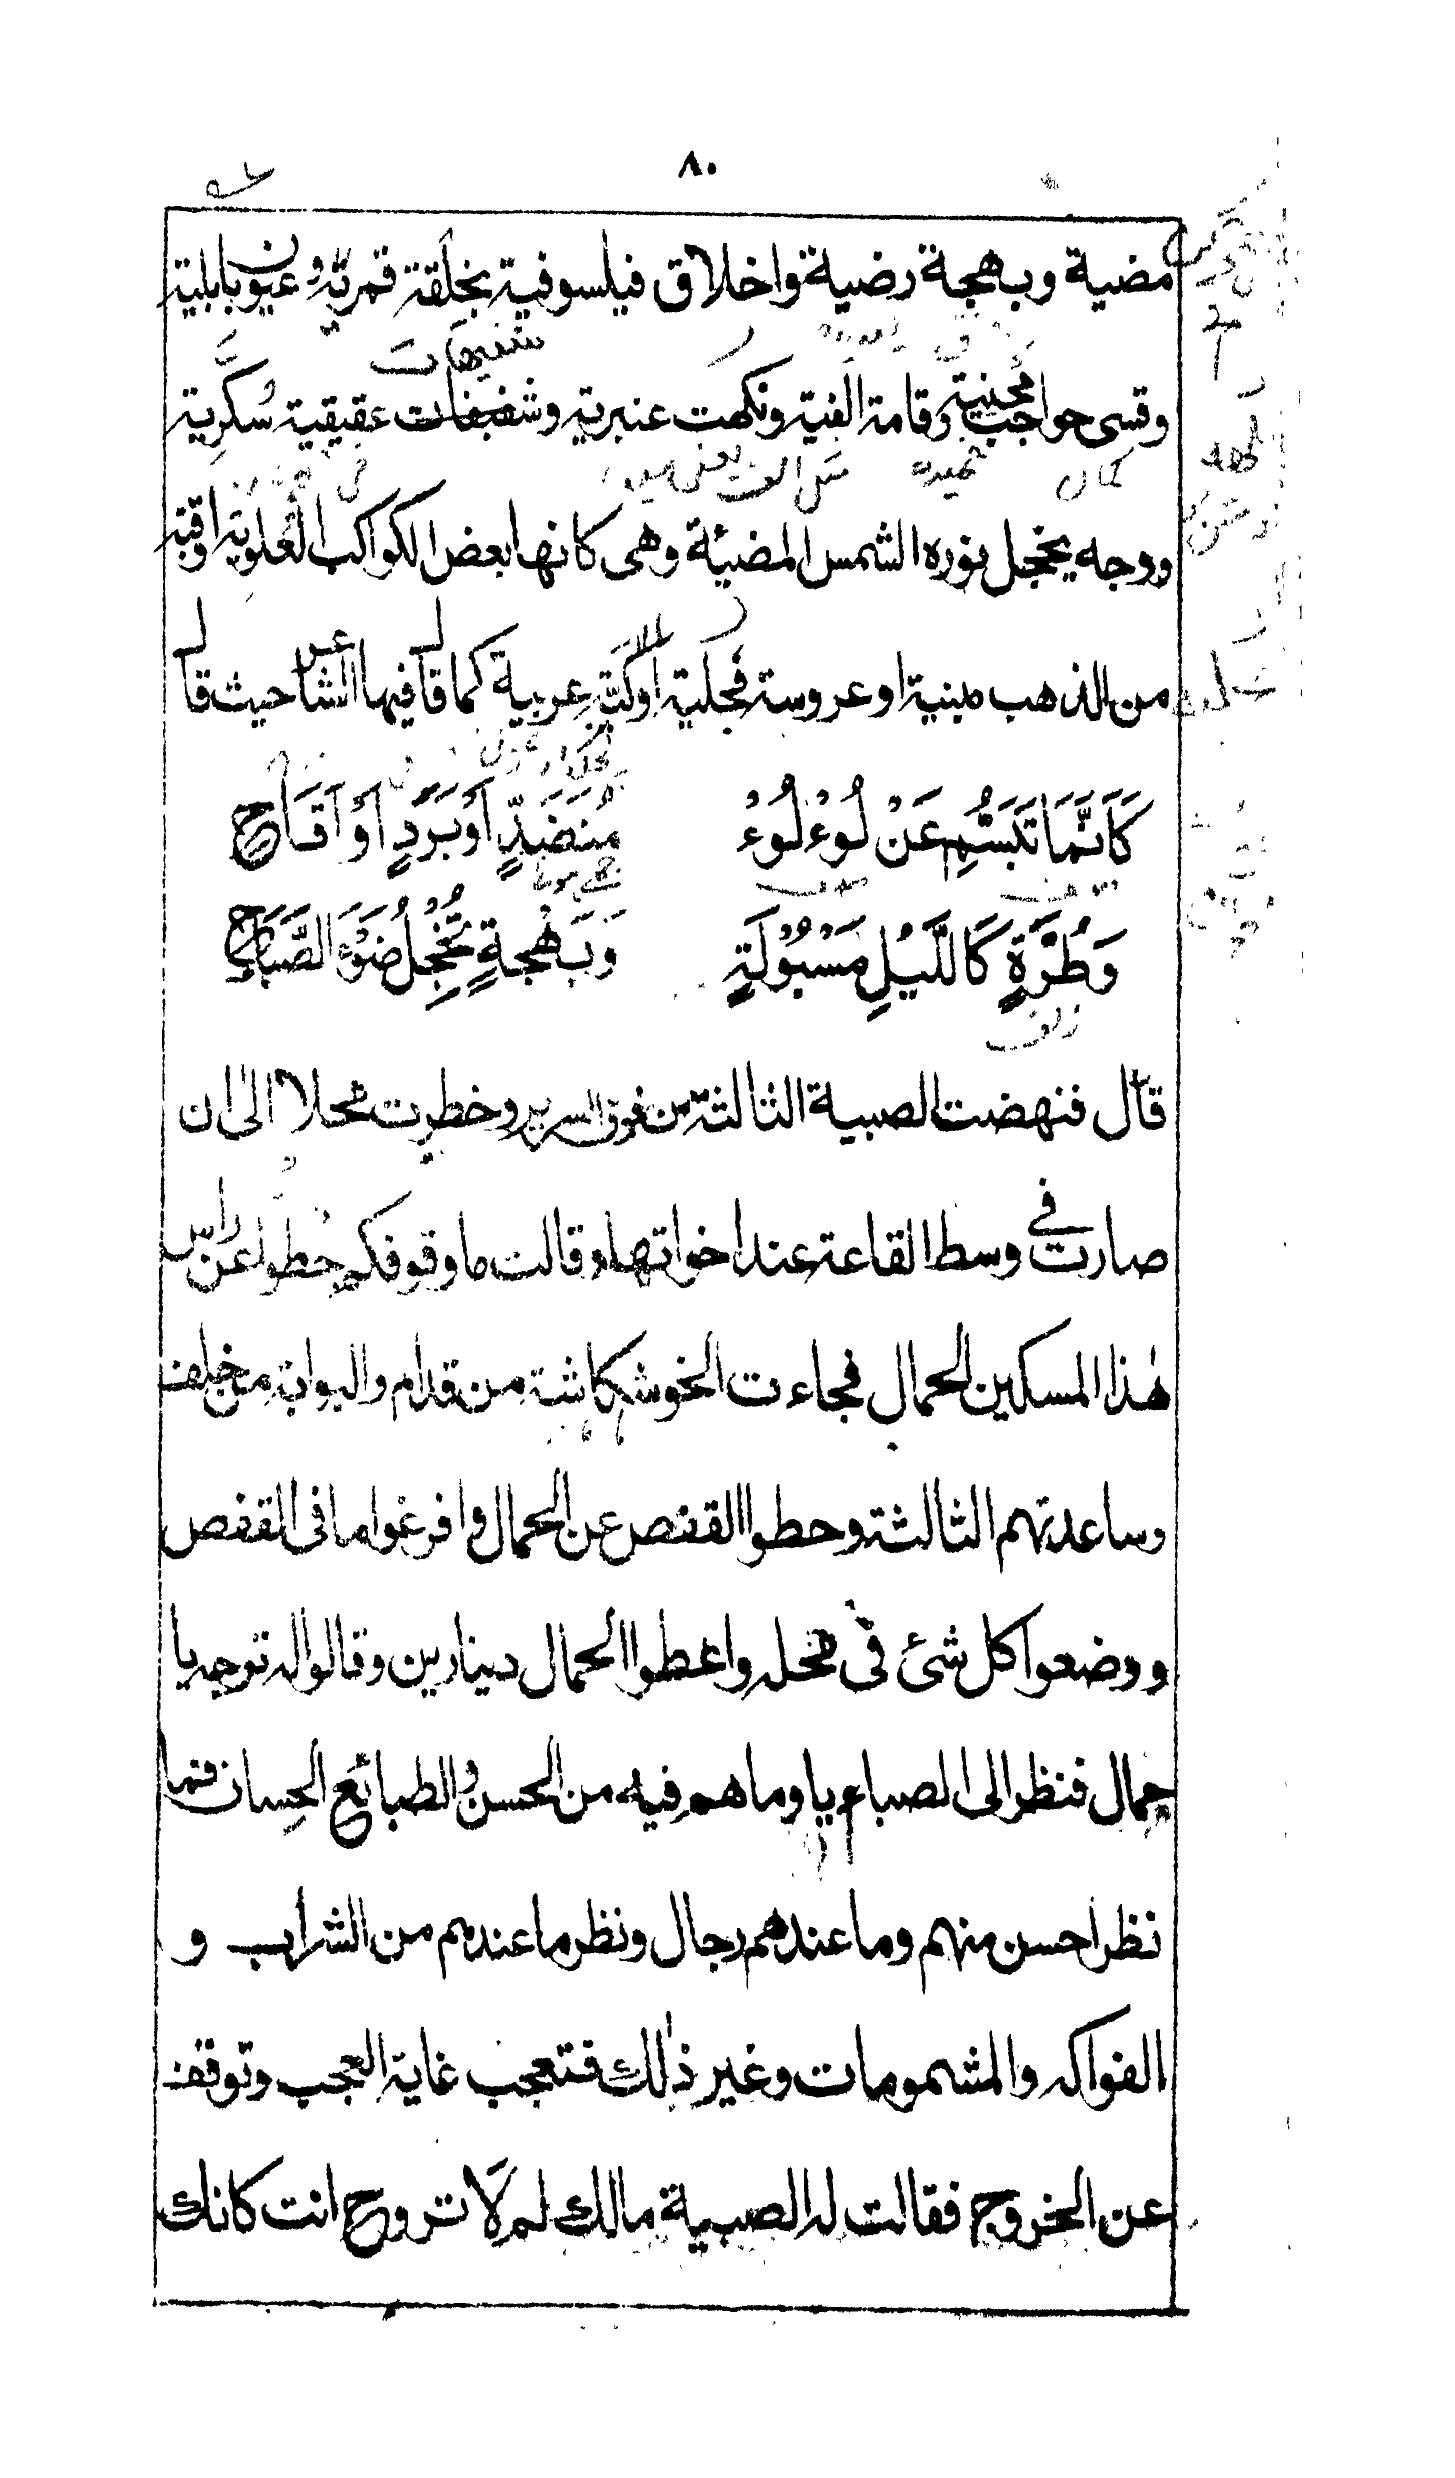 ٨٠
مضية وبهجة رضية واخلاق فيلسوفية بخلقة قمرية وعيون بابلية
وقسى حواجب محنية وقامة الفية ونكهت عنبرية وشفيفات عقيقية سكرية
ووجه يخجل بنوره الشمس المضيئة وهى كانها بعض الكواكب العلوية اوقبة
من الذهب مبنية او عروسة مجلية او كنية عربية كما قال فيها الشاعر حيث قال
كَاَنَّمَا تَبَسَّمِ عَنْ لُوءْلُوءْ مُنَضَّدٍ اَوْ بَرَدٍ اَوْ اَقَاحٍ
وَطُرَّةٍ كَاللَّيْلِ مَسْبُوْلَةٍ وَبَهْجَةٍ تُخْجِلُ ضَوْءَ الصَّبَاحِ
قال فنهضت الصبية الثالثة من فوق السرير وخطرت محلا الى ان
صارت فى وسط القاعة عند اخواتها وقالت ما وقوفكم حطوا عن راس
هذا المسكين الحمال فجاءت الخوشكاشة من قدام والبوابة من خلف
وساعدتهم الثالثة وحطوا القفص عن الحمال وافرغوا ما فى القفص
ووضعوا كل شئ فى محله واعطوا الحمال دينارين وقالوا له توجه يا
حمال فنظر الى الصبايا وما هم فيه من الحسن والطبائع الحسان فما
نظر احسن منهم وما عندهم رجال ونظر ما عندهم من الشراب و
الفواكه والمشمومات وغير ذلك فتعجب غاية العجب وتوقف
عن الخروج فقالت له الصبية مالك لم لا تروح انت كانك